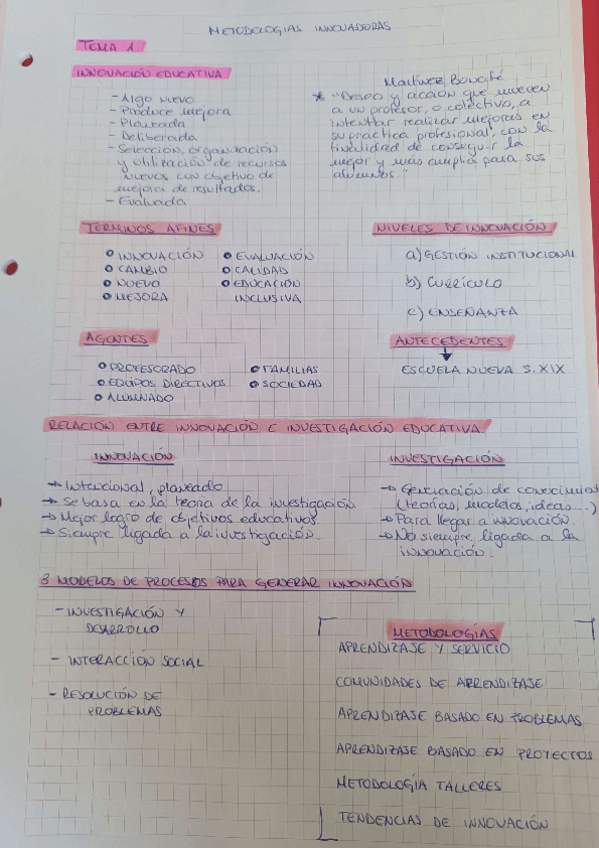 METODOLOGIAS INNOVADORAS
TEMA 1
INNOVACIÓN EDUCATIVA
- Algo nuevo
- Produce mejora
- Planeada
- Deliberada
- Selección, organización
y utilización de recursos
nuevos con objetivo de
mejora de resultados.
- Evaluada
Martínez Bonafé
* "Deseo y acción que mueven
a un profesor, o colectivo, a
intentar realizar mejoras en
su práctica profesional, con la
finalidad de conseguir la
mejor y más amplia para sus
alumnos."
TERMINOS AFINES
INNOVACIÓN
CAMBIO
NUEVO
MEJORA
EVALUACIÓN
CALIDAD
EDUCACIÓN
INCLUSIVA
NIVELES DE INNOVACIÓN
a) GESTIÓN INSTITUCIONAL
b) CURRÍCULO
c) ENSEÑANZA
AGENTES
PROFESORADO
EQUIPOS DIRECTIVOS
ALUMNADO
FAMILIAS
SOCIEDAD
ANTECEDENTES
↓
ESCUELA NUEVA S.XIX
RELACION ENTRE INNOVACIÓN E INVESTIGACIÓN EDUCATIVA
INNOVACIÓN
→ Intencional, planeado
→ Se basa en la teoría de la investigación
→ Mejor logro de objetivos educativos
→ Siempre ligada a la investigación.
INVESTIGACIÓN
→ Generación de conocimient
(teorías, modelos, ideas...)
→ Para llegar a innovación
→ No siempre ligada a la
innovación.
3 MODELOS DE PROCESOS PARA GENERAR INNOVACIÓN
- INVESTIGACIÓN Y
DESARROLLO
- INTERACCIÓN SOCIAL
- RESOLUCIÓN DE
PROBLEMAS
METODOLOGÍAS
APRENDIZAJE Y SERVICIO
COMUNIDADES DE APRENDIZAJE
APRENDIZAJE BASADO EN PROBLEMAS
APRENDIZAJE BASADO EN PROYECTOS
METODOLOGÍA TALLERES
TENDENCIAS DE INNOVACIÓN